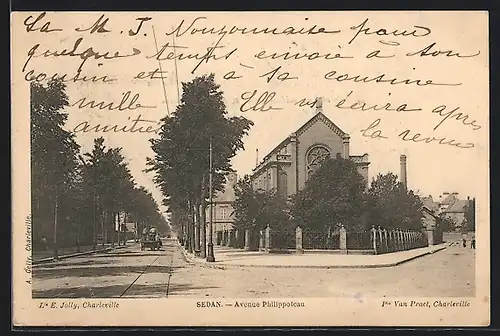 La M. J. Nouzonnaise pour
quelque temps envoie à son
cousin et à sa cousine
mille
amitiés
Elle vs écrira après
la revue
A. Gelly, Charleville.
L^ie E. Jolly, Charleville
SEDAN. — Avenue Philippoteau
P^ie Van Praet, Charleville